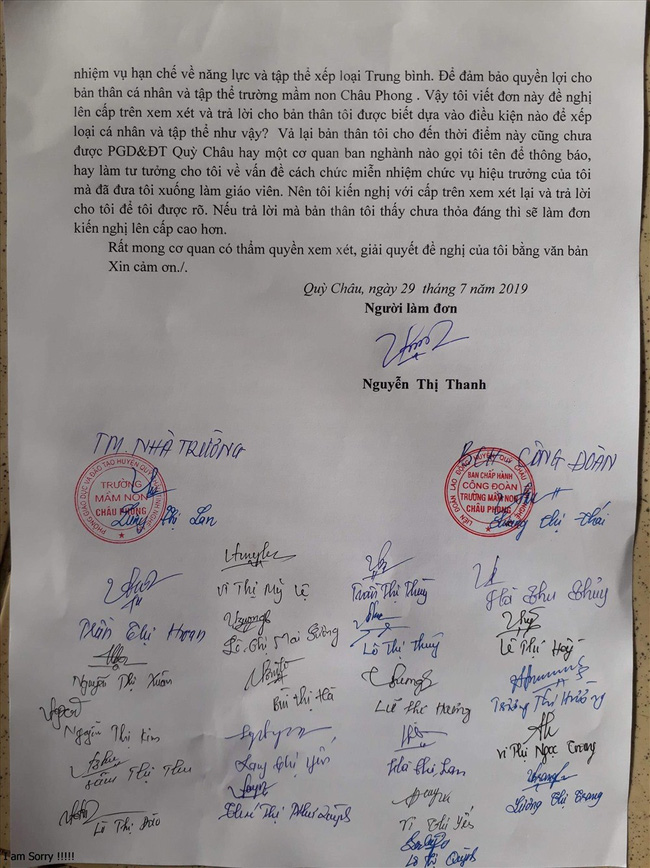 nhiệm vụ hạn chế về năng lực và tập thể xếp loại Trung bình. Để đảm bảo quyền lợi cho
bản thân cá nhân và tập thể trường mầm non Châu Phong . Vậy tôi viết đơn này đề nghị
lên cấp trên xem xét và trả lời cho bản thân tôi được biết dựa vào điều kiện nào để xếp
loại cá nhân và tập thể như vậy? Vả lại bản thân tôi cho đến thời điểm này cũng chưa
được PGD&ĐT Quỳ Châu hay một cơ quan ban nghành nào gọi tôi tên để thông báo,
hay làm tư tưởng cho tôi về vấn đề cách chức miễn nhiệm chức vụ hiệu trưởng của tôi
mà đã đưa tôi xuống làm giáo viên. Nên tôi kiến nghị với cấp trên xem xét lại và trả lời
cho tôi để tôi được rõ. Nếu trả lời mà bản thân tôi thấy chưa thỏa đáng thì sẽ làm đơn
kiến nghị lên cấp cao hơn.
Rất mong cơ quan có thẩm quyền xem xét, giải quyết đề nghị của tôi bằng văn bản
Xin cảm ơn./.
Quỳ Châu, ngày 29 tháng 7 năm 2019
Người làm đơn
Nguyễn Thị Thanh
TM NHÀ TRƯỜNG
BCH CÔNG ĐOÀN
PHÒNG GIÁO DỤC VÀ ĐÀO TẠO HUYỆN QUỲ CHÂU
TRƯỜNG
MẦM NON
CHÂU PHONG
Thị Lan
LIÊN ĐOÀN LAO ĐỘNG HUYỆN QUỲ CHÂU
BAN CHẤP HÀNH
CÔNG ĐOÀN
TRƯỜNG MẦM NON
CHÂU PHONG
Thị Thái
Vi Thị Mỹ Lệ
Trần Thị Thủy
Hà Thu Thủy
Trần Thị Hoan
Lê Thị Mai Sương
Lô Thị Thủy
Lê Thị
Nguyễn Thị Xuân
Bùi Thị Hà
Lê Thị Hương
Trương Thị Hường
Nguyễn Thị Kim
Vi Thị Ngọc Trang
Sầm Thị Thu
Lang Thị Yến
Hà Thị Lan
Lương Thị Trang
Lô Thị Đào
Thị Như Quỳnh
Vi Thị Yến
Lô Thị Quỳnh
I am Sorry !!!!!